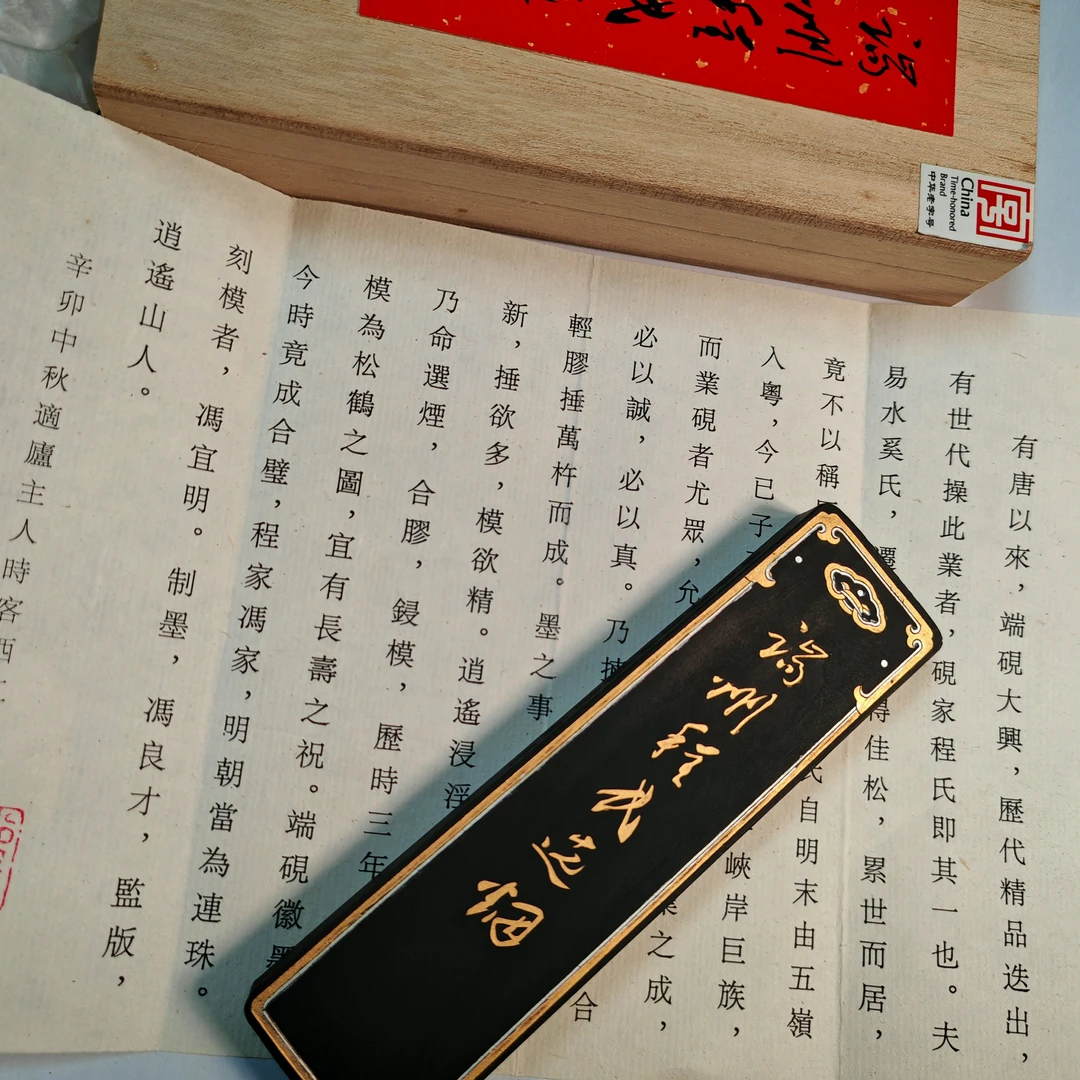 China
Time-honored
Brand
中华老字号
端州程氏
有唐以來，端硯大興，歷代精品迭出，
有世代操此業者，硯家程氏即其一也。夫
易水奚氏，遷 得佳松，累世而居，
竟不以稱 氏自明末由五嶺
入粵，今已子 峽岸巨族，
而業硯者尤眾，允 之成，
必以誠，必以真。乃揀 合
輕膠捶萬杵而成。墨之事
新，捶欲多，模欲精。逍遙浸淫
乃命選煙，合膠，鋟模，歷時三年
模為松鶴之圖，宜有長壽之祝。端硯徽墨
今時竟成合璧，程家馮家，明朝當為連珠。
刻模者，馮宜明。制墨，馮良才，監版，
逍遙山人。
辛卯中秋適廬主人時客西
端州程氏选烟